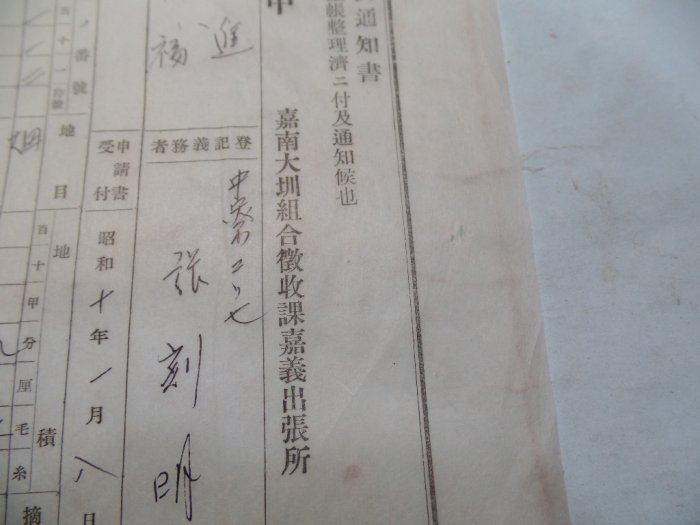 通知書
帳整理濟ニ付及通知候也
嘉南大圳組合徵收課嘉義出張所
中
登記義務者
進
福
中寮二ノ七
張刻明
申請書
受付
昭和十年一月八日
ノ番號
地目
地
積
百十甲分厘毛糸
摘